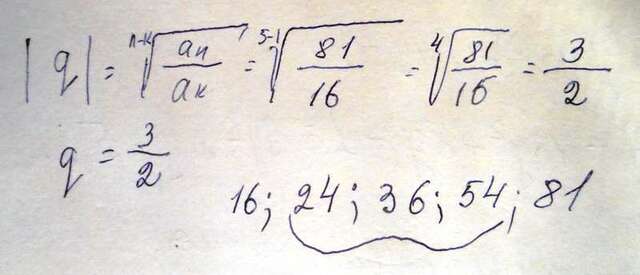 |q| = ⁿ⁻ᵏ√(aₙ/aₖ) = ⁵⁻¹√(81/16) = ⁴√(81/16) = 3/2
q = 3/2
16; 24; 36; 54; 81